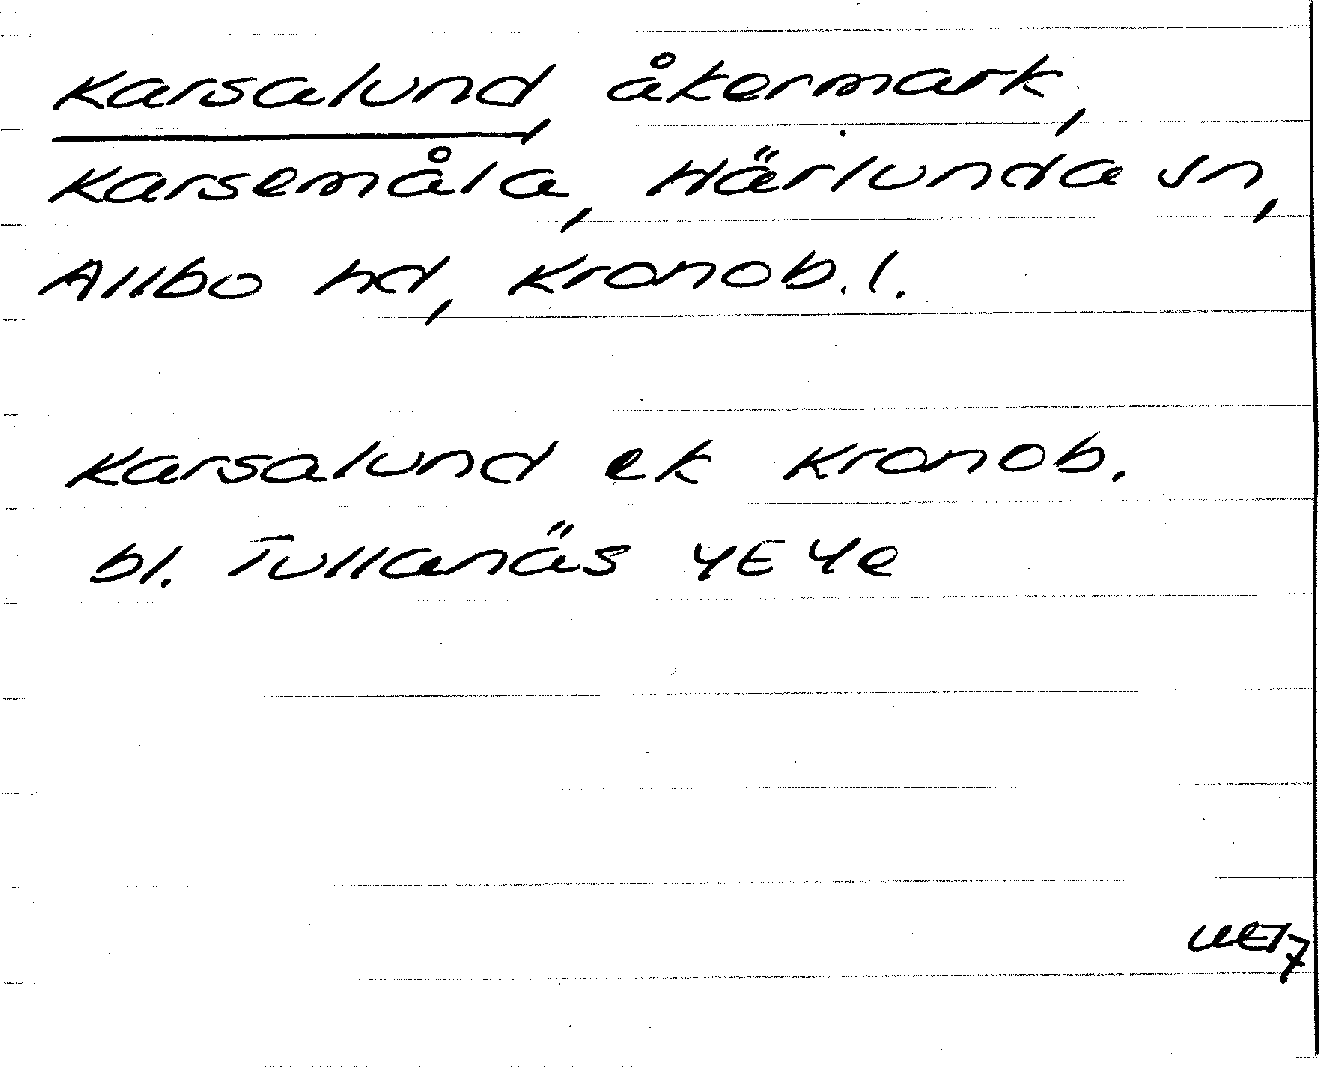 Karsalund, åkermark,
Karsemåla, Härlunda sn,
Allbo hd, Kronob. l.
Karsalund ek Kronob.
bl. Tullanäs 4E 4e